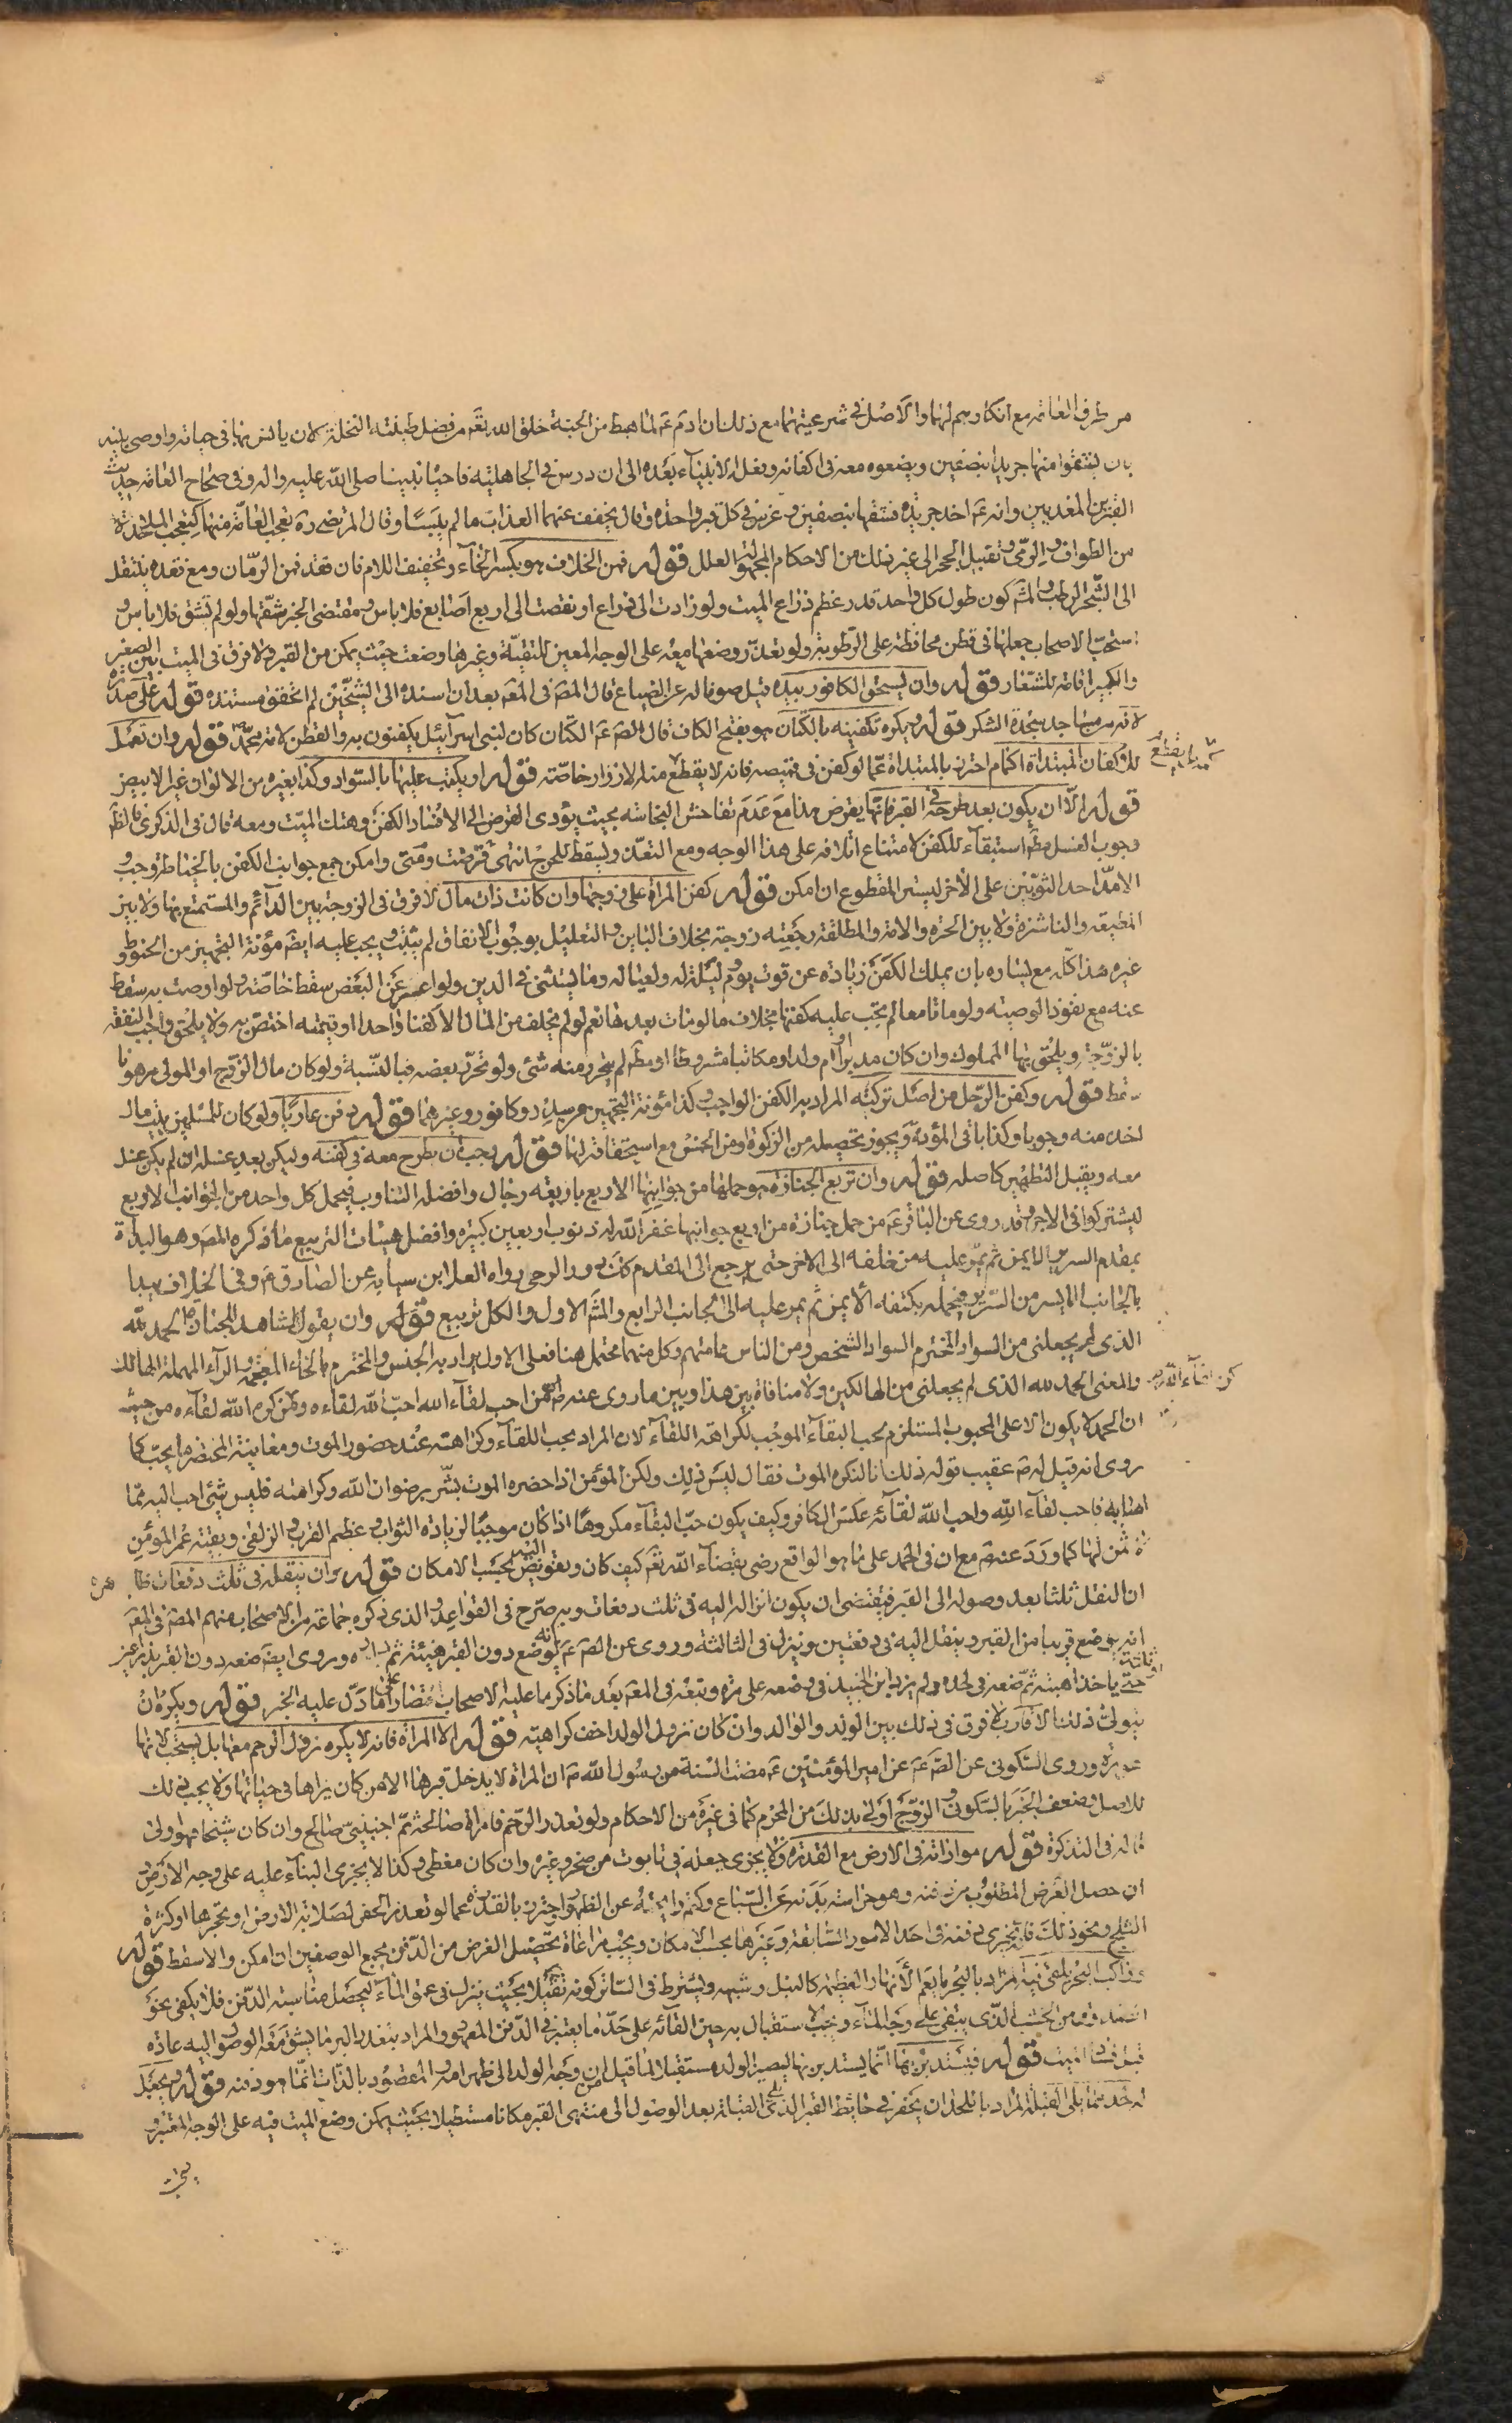 من طرف العامة مع انكارهم لها والاصل في شرعيتهما مع ذلك ان ادم ع لما هبط من الجنة خلق الله تعه من فضل طينته النخلة لان يانس بها في حياته واوصى بنيه
بان يشقوا منها جريدا بنصفين ويضعوه معه في اكفانه وفعله الانبياء بعده الى ان درس في الجاهلية فاحياه نبينا صلى الله عليه واله وفي صحاح العامة حديث
القبرين المعذبين وانه ع اخذ جريدة فشقها بنصفين وغرس في كل قبر واحدة وقال يخفف عنهما العذاب ما لم ييبسا وقال المرتضى ره تعجب العامة منها كتعجب الملاحدة
من الطواف والرمى وتقبيل الحجر الى غير ذلك من الاحكام المجهولة العلل قوله فمن الخلاف هو بكسر الخاء وتخفيف اللام فان فقد فمن الرمان ومع فقده ينتقل
الى الشجر الرطب والمش كون طول كل واحد قدر عظم ذراع الميت ولو زادت الى ذراع او نقصت الى اربع اصابع فلا باس ومقتضى الخبر شقها ولو لم تشق فلا باس و
استحب الاصحاب جعلها في قطن محافظة على الرطوبة ولو تعذر وضعها معه على الوجه المعين للتقية وغيرها وضعت حيث يمكن من القبر ولا فرق في الميت بين الصغير
والكبير اقامة للشعار قوله وان يسحق الكافور بيده قيل صونا له عن الضياع قال المص في المعه بعد ان اسنده الى الشيخين لم اتحقق مستنده قوله على صدره
لانه من مساجد سجدة الشكر قوله ويكره تكفينه بالكتان هو بفتح الكاف قال الص ع الكتان كان لبنى اسرائيل يكفنون به والقطن لامة محمد ص قوله وان تعمل
للاكفان المبتداة اكمام احترز بالمبتداة عما لو كفن في قميصه فانه لا يقطع منه الا الازرار خاصة قوله او يكتب عليها بالسواد وكذا بغيره من الالوان غير الابيض
قوله الا ان يكون بعد طرحه في القبر فانها يقرض هذا مع عدم تفاحش النجاسة بحيث يؤدى القرض الى الافساد الكفن وهتك الميت ومعه قال في الذكرى فالظ
وجوب الغسل مط استبقاء للكفن لامتناع اتلافه على هذا الوجه ومع التعذر يسقط للحرج انتهى قرضت ومتى وامكن جمع جوانب الكفن بالخياطة وجب و
الا مد احد الثوبين على الاخر ليستر المقطوع ان امكن قوله كفن المراة على زوجها وان كانت ذات مال لا فرق في الزوجة بين الدائم والمستمتع بها ولا بين
المطيعة والناشزة ولا بين الحرة والامة والمطلقة رجعية زوجة بخلاف الباين والتعليل بوجوب الانفاق لم يثبت ويجب عليه ايضا مؤنة التجهيز من الحنوط و
غيره هذا كله مع يساره بان يملك الكفن زيادة عن قوت يوم وليلة له ولعياله وما يستثنى في الدين ولو اعسر عن البعض سقط خاصة ولو اوصت به سقط
عنه مع نفوذ الوصية ولو ماتا معا لم يجب عليه كفنها بخلاف ما لو مات بعدها نعم لو لم يخلف من المال الا كفنا واحدا او قيمته اختص به ولا يلحق واجب النفقة
بالزوجة ويلحق بها المملوك وان كان مدبرا او ام ولد او مكاتبا مشروطا او مط لم يتحرر منه شئ ولو تحرر بعضه فبالنسبة ولو كان مال الزوج او المولى مرهونا
سقط قوله وكفن الرجل من اصل تركته المراد به الكفن الواجب وكذا مؤنة التجهيز من سدر وكافور وغيرهما قوله دفن عاريا ولو كان للمسلمين بيت مال
اخذ منه وجوبا وكذا باقى المؤنة ويجوز تحصيله من الزكوة ومن الخمس مع استحقاقه لها قوله يجب ان يطرح معه في كفنه وليكن بعد غسله ان لم يكن غسل
معه ويقبل التطهير كاصله قوله وان تربع الجنازة هو حملها من جوانبها الاربع باربعة رجال وافضله التناوب فيحمل كل واحد من الجوانب الاربع
ليشتركوا في الاجر وقد روى عن الباقر ع من حمل جنازة من اربع جوانبها غفر الله له ذنوب اربعين كبيرة وافضل هيئات التربيع ما ذكره المص وهو البداة
بمقدم السرير الايمن ثم يمر عليه من خلفه الى الاخر حتى يرجع الى المقدم كك دور الرحى رواه العلا ابن سيابة عن الصادق ع وفي الخلاف يبدا
بالجانب الايسر من السرير فيحمله بكتفه الايمن ثم يمر عليه الى الجانب الرابع والمش الاول والكل تربيع قوله وان يقول المشاهد للجنازة الحمد لله
الذى لم يجعلنى من السواد المخترم السواد الشخص ومن الناس عامتهم وكل منهما محتمل هنا فعلى الاول يراد به الجنس والمخترم بالخاء المعجمة والراء المهملة الهالك
والمعنى الحمد لله الذى لم يجعلنى من الهالكين ولا منافاة بين هذا وبين ما روى عنه ص من احب لقاء الله احب الله لقاءه ومن كره الله لقاءه من حيث
ان الحمد لا يكون الا على المحبوب المستلزم لحب البقاء الموجب لكراهة اللقاء لان المراد بحب اللقاء وكراهته عند حضور الموت ومعاينة المحتضر ما يحب كما
روى انه قيل له ص عقيب قوله ذلك انا لنكره الموت فقال ليس ذلك ولكن المؤمن اذا حضره الموت بشر برضوان الله وكرامته فليس شئ احب اليه مما
امامه فاحب لقاء الله واحب الله لقائه عكس الكافر وكيف يكون حب البقاء مكروها اذا كان موجبا لزيادة الثواب وعظيم القرب والزلفى وبقية عمر المؤمن
لا ثمن لها كما ورد عنه ص مع ان في الحمد على ما هو الواقع رضى بقضاء الله تعه كيف كان وتفويض اليه بحسب الامكان قوله وان ينقله في ثلث دفعات ظاهره
ان النقل ثلثا بعد وصوله الى القبر فيقتضى ان يكون انزاله اليه في ثلث دفعات وبه صرح في القواعد والذى ذكره جماعة من الاصحاب منهم المص في المعه
انه يوضع قريبا من القبر وينقل اليه في دفعتين وينزل في الثالثة وروى عن الص ع انه يوضع دون القبر هنيئة ثم واره وروى ايضا ضعه دون القبر بذراعين
حتى ياخذ اهبته ثم ضعه في لحده ولم يزد ابن الجنيد في وضعه على مرة وتبعه في المعه بعد ما ذكر ما عليه الاصحاب اقتصارا على ما دل عليه الخبر قوله ويكره ان
يتولى ذلك الاقارب لا فرق في ذلك بين الولد والوالد وان كان نزول الولد اخف كراهية قوله الا المراة فانه لا يكره نزول الرحم معها بل يستحب لانها
عورة وروى السكونى عن الص ع عن امير المؤمنين ع مضت السنة من رسول الله ص ان المراة لا يدخل قبرها الا من كان يراها في حياتها ولا يجب ذلك
للاصل وضعف الخبر بالسكونى والزوج اولى بذلك من المحرم كما في غيره من الاحكام ولو تعذر الرحم فامراة صالحة ثم اجنبى صالح وان كان شيخا فهو اولى
قاله في التذكرة قوله مواراته في الارض مع القدرة ولا يجزى جعله في تابوت من صخر وغيره وان كان مغطى وكذا لا يجزى البناء عليه على وجه الارض
ان حصل الغرض المطلوب من دفنه وهو حراسة بدنه عن السباع وكتم رايحته عن الظهور واحترز بالقدرة عما لو تعذر الحفر لصلابة الارض او تحجرها او كثرة
الثلج ونحو ذلك فانه يجزى دفنه في احد الامور السابقة وغيرها بحسب الامكان ويجب مراعاة تحصيل الغرض من الدفن بجمع الوصفين ان امكن والا سقط قوله
وراكب البحر يلقى فيه المراد بالبحر ما يعم الانهار العظيمة كالنيل وشبهه ويشترط في الساتر كونه ثقيلا بحيث ينزل في عمق الماء ليحصل مناسبة الدفن فلا يكفى نحو
الصندوق من الخشب الذى يبقى على وجه الماء ويجب استقبال به حين القائه على حد ما يعتبر في الدفن المعهود والمراد بتعذر البر ما يشق معه الوصول اليه عادة
قبل فساد الميت قوله فيستدبر بها انما يستدبر بها ليصير الولد مستقبلا لما قيل من ان وجه الولد الى ظهر امه والمقصود بالذات انما هو دفنه قوله ويجعل
له لحد مما يلى القبلة المراد باللحد ان يحفر في حائط القبر الذى يلى القبلة بعد الوصول الى منتهى القبر مكانا مستطيلا بحيث يمكن وضع الميت فيه على الوجه المعتبر و